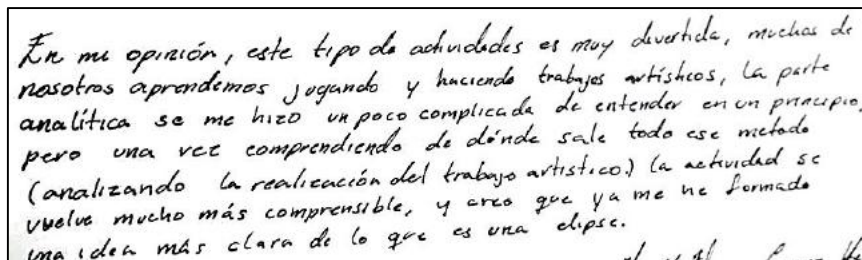 En mi opinión, este tipo de actividades es muy divertida, muchos de
nosotros aprendemos jugando y haciendo trabajos artísticos, la parte
analítica se me hizo un poco complicada de entender en un principio,
pero una vez comprendiendo de dónde sale todo ese metodo
(analizando la realización del trabajo artistico) la actividad se
vuelve mucho más comprensible, y creo que ya me he formado
una idea más clara de lo que es una elipse.